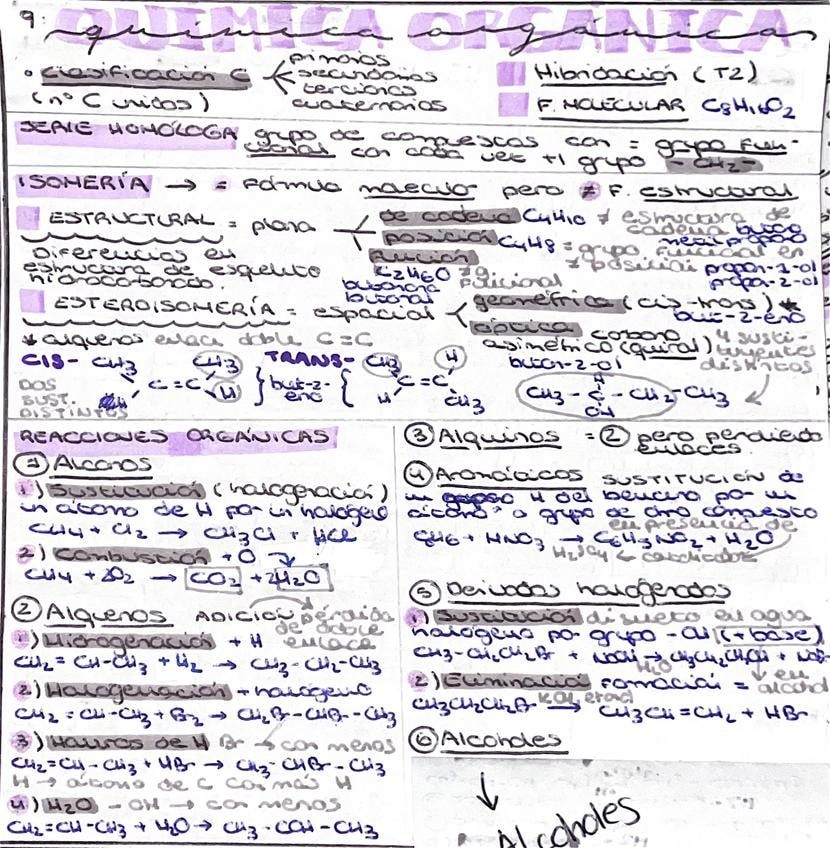 9:
QUÍMICA ORGÁNICA
química orgánica
• Clasificación C
(nº C unidos)
primarios
secundarios
terciarios
cuaternarios
Hibridación (T2)
F. MOLECULAR C8H16O2
SERIE HOMÓLOGA grupo de compuestos con = grupo fun-
cional con cada vez +1 grupo -CH2-
ISOMERÍA → = Fórmula molecular pero ≠ F. estructural
ESTRUCTURAL = plana
Diferencias en
estructura de esqueleto
hidrocarbonado.
de cadena C4H10 ≠ estructura de
cadena butano
metilpropano
posición C4H8 = grupo funcional en
≠ posición propan-1-ol
propan-2-ol
función
C2H6O ≠ g.
funcional
butanona
butanal
ESTEROISOMERÍA = espacial
geométrica (cis-trans) *
but-2-eno
óptica carbono
asimétrico (quiral) 4 susti-
tuyentes
distintos
butan-2-ol
* alquenos enlace doble C=C
CIS- CH3 CH3
C=C
H
DOS
SUST.
DISTINTOS
but-2-
eno
TRANS- CH3 H
C=C
H CH3
H
CH3 - C - CH2 - CH3
OH
REACCIONES ORGÁNICAS
① Alcanos
1) Sustitución (halogenación)
un átomo de H por un halógeno
CH4 + Cl2 → CH3Cl + HCl
2) Combustión + O
CH4 + 2O2 → CO2 + 2H2O
② Alquenos ADICIÓN pérdida
de doble
enlace
1) Hidrogenación + H
CH2 = CH-CH3 + H2 → CH3-CH2-CH3
2) Halogenación + halógeno
CH2 = CH-CH3 + Br2 → CH2Br-CHBr-CH3
3) Haluros de H Br → con menos
CH2=CH-CH3 + HBr → CH3-CHBr-CH3
H → átomo de C con más H
4) H2O - OH → con menos
CH2=CH-CH3 + H2O → CH3-COH-CH3
③ Alquinos = ② pero perdiendo
enlaces.
④ Aromáticos SUSTITUCIÓN de
un H del benceno por un
átomo o grupo de otro compuesto
en presencia de
C6H6 + HNO3 → C6H5NO2 + H2O
H2SO4 ← catalizador
⑤ Derivados halogenados
1) Sustitución disuelto en agua
halógeno por grupo -OH (+ base)
CH3-CH2CH2Br + NaOH → CH3CH2CH2OH + NaBr
H2O
2) Eliminación Formación = en
alcohol
CH3CH2CH2Br → CH3CH=CH2 + HBr
KOH, etanol
⑥ Alcoholes
Alcoholes